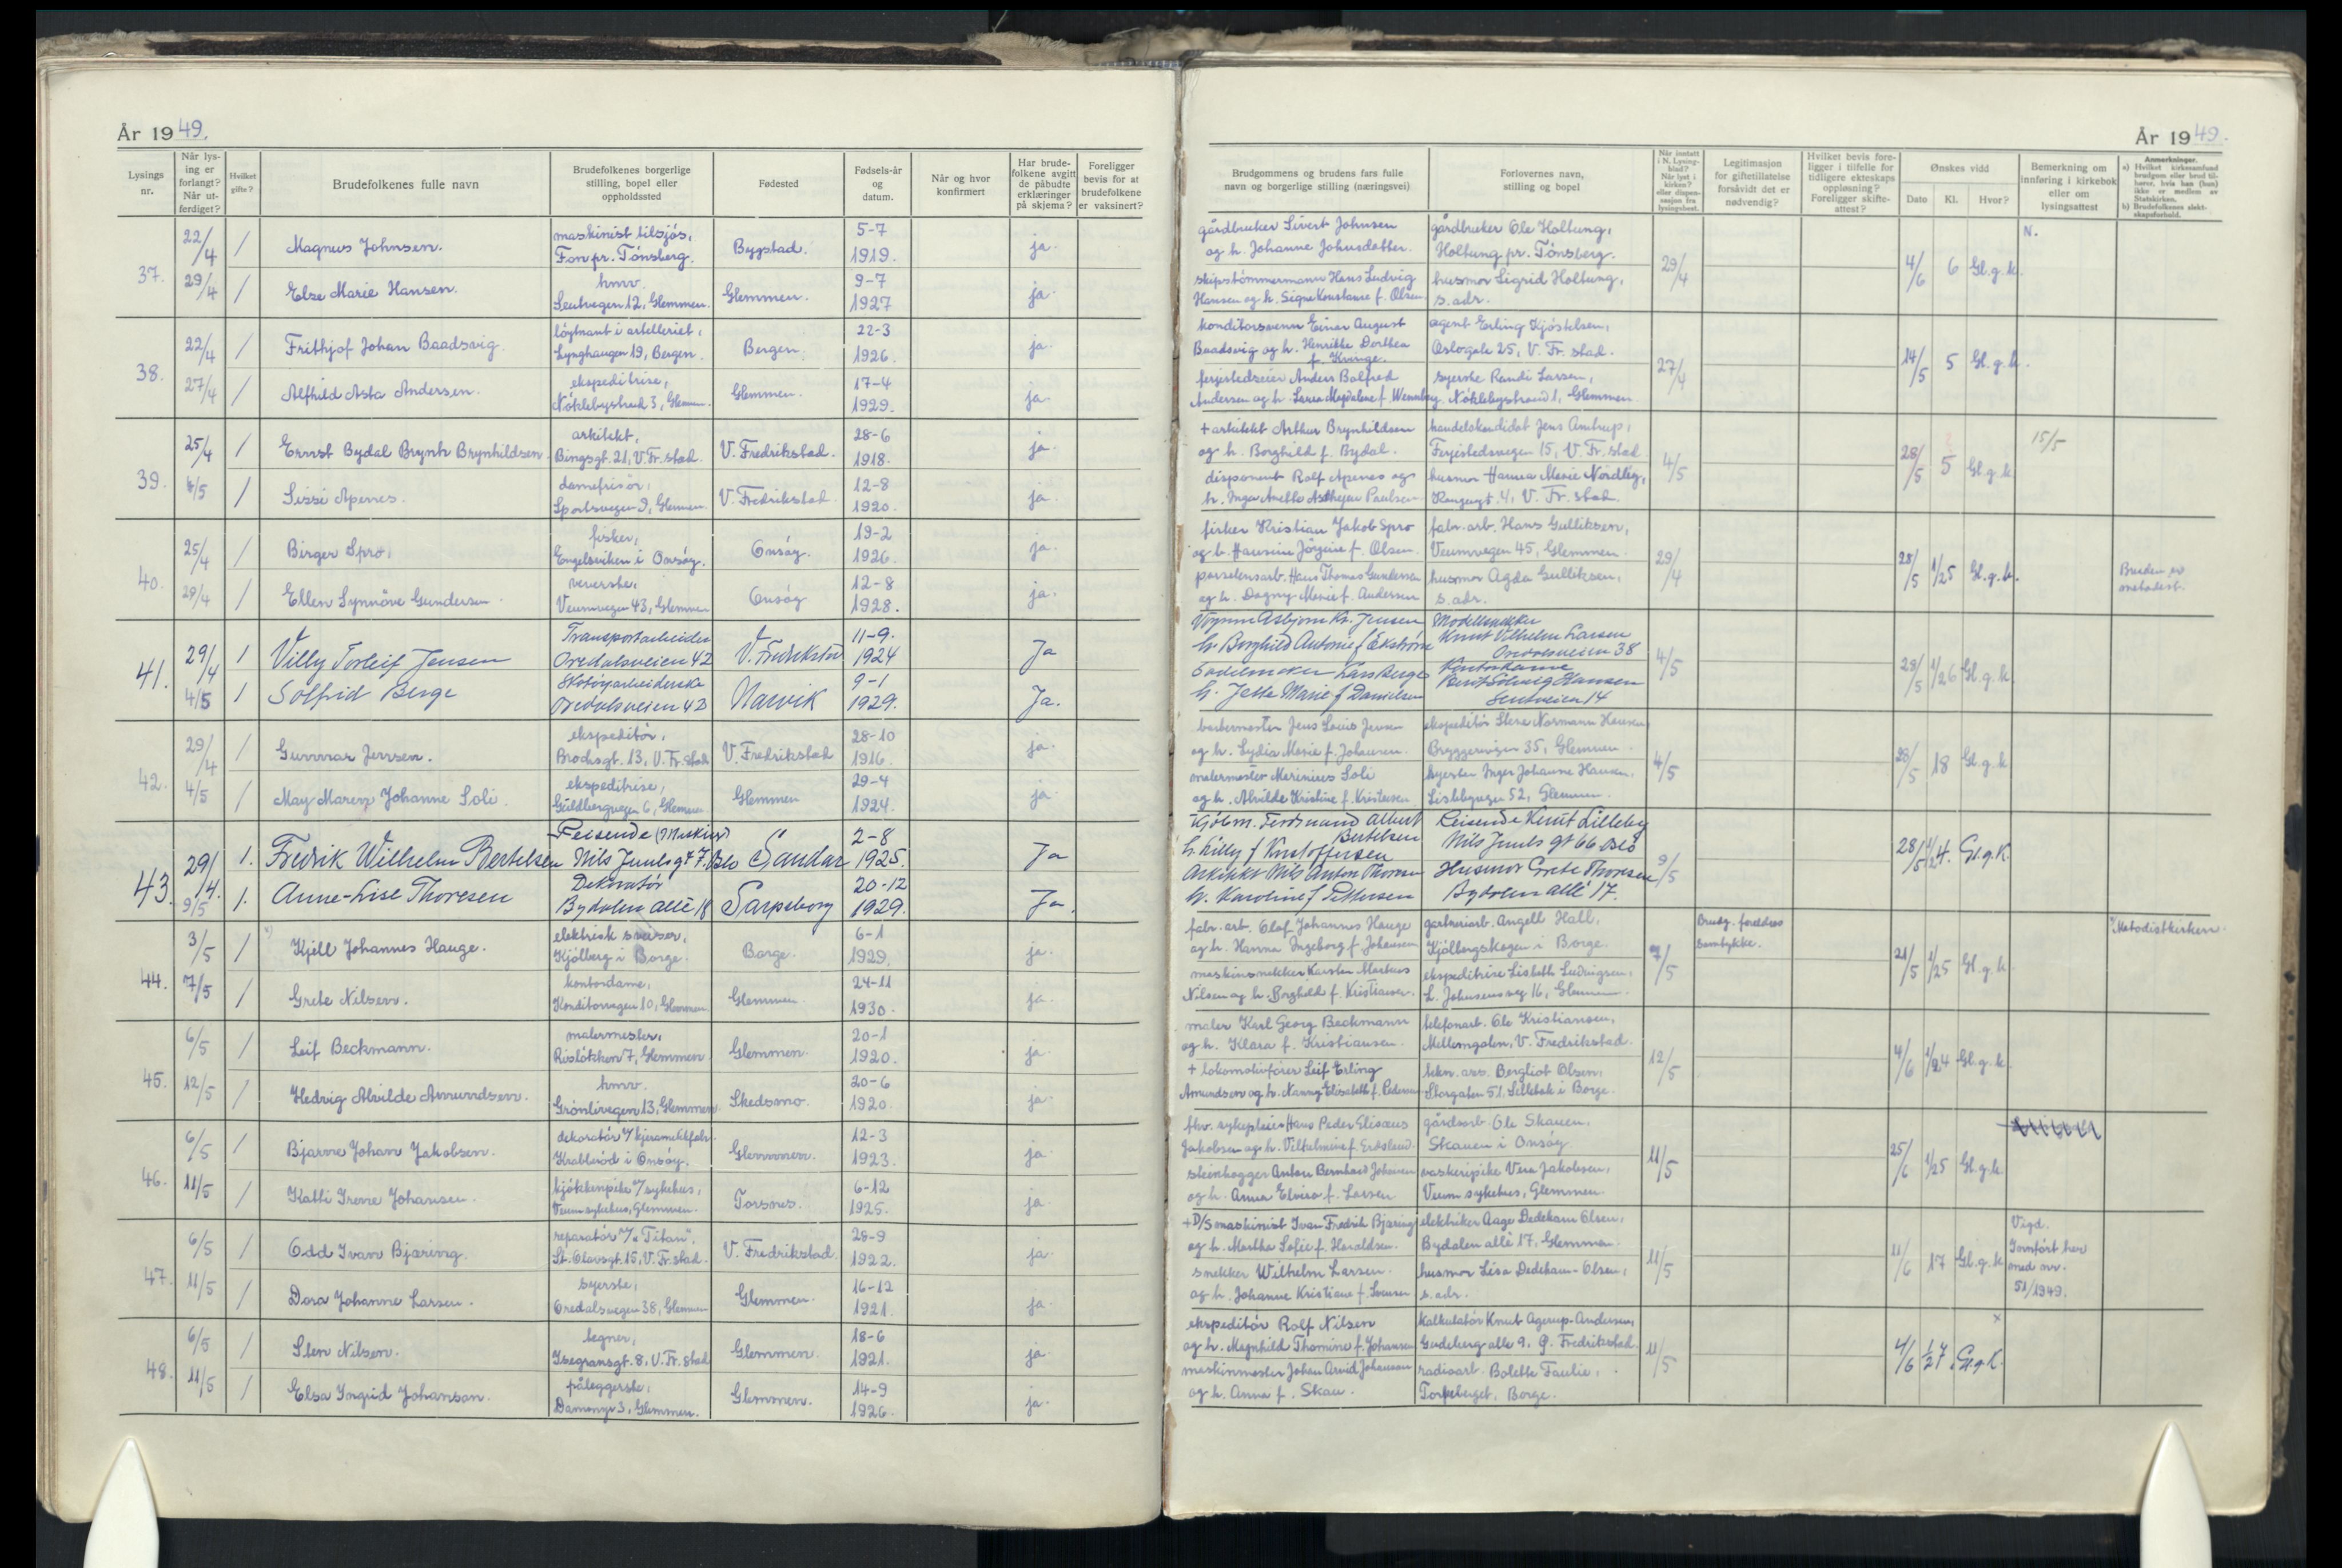 År 1949.
Lysings nr.
Når lysing er forlangt? Når utferdiget?
Hvilket gifte?
Brudefolkenes fulle navn
Brudefolkenes borgerlige stilling, bopel eller oppholdssted
Fødested
Fødsels-år og datum.
Når og hvor konfirmert
Har brudefolkene avgitt de påbudte erklæringer på skjema?
Foreligger bevis for at brudefolkene er vaksinert?
37.
22/4
1
Magnus Johnsen.
maskinist tilsjøs,
Fon pr. Tønsberg.
Bygstad.
5-7
1919.
ja.
29/4
1
Else Marie Hansen.
hmv.
Leutvegen 12, Glemmen.
Glemmen.
9-7
1927
ja.
38.
22/4
1
Frithjof Johan Baadsvig
løytnant i artelleriet,
Lynghaugen 19, Bergen.
Bergen.
22-3
1926.
ja.
27/4
1
Alfhild Asta Andersen.
ekspeditrise,
Nøklebystrand 3, Glemmen.
Glemmen.
17-4
1929.
ja.
39.
25/4
1
Ernst Bydal Brynh Brynhildsen.
arkitekt,
Bingsgt. 21, V. Fr.stad.
V. Fredrikstad.
28-6
1918.
ja.
4/5
1
Sissi Apenes.
damefrisør,
Sportsvegen 9, Glemmen.
V. Fredrikstad.
12-8
1920.
ja.
40.
25/4
1
Birger Spro,
fisker,
Engelsviken i Onsøy.
Onsøy.
19-2
1926.
ja.
29/4
1
Ellen Synnöve Gundersen.
veverske,
Veumvegen 43, Glemmen
Onsøy
12-8
1928.
ja.
41.
29/4
1
Villy Torleif Jensen
Transportarbeider
Oredalsveien 42
V. Fredrikstad
11-9.
1924
Ja
4/5
1
Solfrid Berge
Skotøyarbeiderske
Oredalsveien 42
Narvik
9-1
1929.
Ja.
42.
29/4
1
Gunnar Jensen.
ekspeditør,
Brochsgt. 13, V. Fr.stad
V. Fredrikstad
28-10
1916.
ja.
4/5
1
May Maren Johanne Soli.
ekspeditrise,
Guldbergvegen 6, Glemmen
Glemmen
29-4
1924.
ja.
43.
29/4.
1.
Fredrik Wilhelm Bertelsen
Reisende
Nils Juuls gt 7. Oslo
Sandar
2-8
1925.
Ja
9/5
1.
Anne-Lise Thoresen
Dekoratør
Bydalen allé 18
Sarpsborg
20-12
1929.
Ja.
44.
3/5
1
Kjell Johannes Hauge.
elektrisk sveiser,
Kjølberg i Borge.
Borge.
6-1
1929.
ja.
7/5
1
Grete Nilsen.
kontordame,
Konditorvegen 10, Glemmen
Glemmen.
24-11
1930.
ja.
45.
6/5
1
Leif Beckmann.
malermester,
Risløkken 7, Glemmen.
Glemmen.
20-1
1920.
ja.
12/5
1
Hedvig Alvilde Amundsen.
hmv.
Grønlivegen 13, Glemmen.
Skedsmo.
20-6
1920.
ja.
46.
6/5
1
Bjarne Johan Jakobsen.
Krabberød i Onsøy.
Glemmen.
12-3
1923.
ja.
11/5
1
Katti Irene Johansen.
kjøkkenpike v/ sykehus,
Veum sykehus, Glemmen.
Torsnes.
6-12
1925.
ja.
47.
6/5
1
Odd Ivan Bjæring.
reparatør v/ "Titan",
St. Olavsgt. 15, V. Fr.stad.
V. Fredrikstad.
29-9
1922.
ja.
11/5
1
Dora Johanne Larsen.
syerske,
Oredalsvegen 38, Glemmen
Glemmen.
16-12
1921.
ja.
48.
6/5
1
Sten Nilsen.
tegner,
Isegransgt. 8, V. Fr.stad
Glemmen.
18-6
1921.
ja.
11/5
1
Elsa Ingrid Johanson.
påleggerske,
Damvngr 3, Glemmen.
Glemmen.
14-9
1926.
ja.
År 1949.
Brudgommens og brudens fars fulle navn og borgerlige stilling (næringsvei)
Forlovernes navn, stilling og bopel
Når inntatt i N. Lysingblad? Når lyst i kirken? eller dispensasjon fra lysingsbest.
Legitimasjon for giftetillatelse forsåvidt det er nødvendig?
Hvilket bevis foreligger i tilfelle for tidligere ekteskaps oppløsning? Foreligger skifteattest?
Ønskes vidd
Dato
Kl.
Hvor?
Bemerkning om innføring i kirkebok eller om lysingsattest
Anmerkninger.
a) Hvilket kirkesamfund brudgom eller brud tilhører, hvis han (hun) ikke er medlem av Statskirken.
b) Brudefolkenes slektskapsforhold.
gårdbruker Sivert Johnsen
og h. Johanne Johnsdatter.
gårdbruker Ole Holtung,
Holtung pr. Tønsberg.
skipstømmermann Hans Ludvig
Hansen og h. Signe Konstanse f. Olsen
husmor Sigrid Holtung,
s. adr.
29/4
4/6
6
Gl. g. k.
N.
konditorsvenn Einar August
Baadsvig og h. Henrikke Dorthea
agent Erling Kjøstelsen,
Oslogate 25, V. Fr. stad.
Andersen og h.
syerske Randi Larsen,
Nøklebystrand 1, Glemmen
27/4
14/5
5
Gl. g. k.
+ arkitekt Arthur Brynhildsen
og h. Borghild f. Bydal.
handelskandidat Jens Amtrup,
Ferjestedsvegen 15, V. Fr. stad
disponent Rolf Apenes og
husmor Hanna Marie Nordlig,
4/5
28/5
5
Gl. g. k.
15/5
fisker Kristian Jakob Spro
og h. Hansine Jörgine f. Olsen.
fabr. arb. Hans Gulliksen,
Veumvegen 45, Glemmen.
porselensarb. Hans Thomas Gundersen
og h. Dagny Marie f. Andersen
husmor Agda Gulliksen,
s. adr.
29/4
28/5
1/2 5
Gl. g. k.
Bruden er
metodist.
Vognm. Asbjørn Kr. Jensen
h. Borghild Antonie f Ekstrøm
Modellsnekker
Knut Vilhelm Larsen
Oredalsveien 38
Lars Berge
h. Jette Marie f Danielsen
Kontordame
Berit Solveig Hansen
Leutveien 14
4/5
29/5
1/2 6
Gl. g. k.
barbermester Jens Louis Jensen
og h. Lydia Marie f. Johansen.
ekspeditør Stene Normann Hansen,
Bryggerivegen 35, Glemmen.
malermester Marinius Soli
og h. Alvilde Kristine f. Kristensen
syerske Inger Johanne Hansen,
Lislebyvegen 52, Glemmen.
4/5
28/5
18
Gl. g. k.
Kjøbm. Ferdinand Albert
Bertelsen
h. Lilly f Kristoffersen
Reisende Knut Lilleby
Nils Juuls gt 66 Oslo
Arkitekt Nils Anton Thoresen
h. Karoline f Pettersen
Husmor Grete Thoresen
Bydalen allé 17.
9/5
28/5
1/2 4.
Gl. g. K.
fabr. arb. Olof Johannes Hauge
og h. Hanna Ingeborg f. Johansen
gartneriarb. Angell Hall,
Kjølbergskogen i Borge.
maskinsnekker Karsten Markus
Nilsen og h. Borghild f. Kristiansen.
ekspeditrise Lisbeth Ludvigsen,
L. Johnsensveg 16, Glemmen
7/5
Brudg. foreldres
samtykke.
21/5
1/2 5
Gl. g. k.
Metodistkirken.
maler Karl Georg Beckmann
og h. Klara f. Kristiansen.
telefonarb. Ole Kristiansen,
Mellomgaten, V. Fredrikstad.
+ lokomotivfører Leif Erling
Amundsen og h. Nanny Elisabeth f. Pedersen
tekn. ass. Bergliot Olsen,
Storgaten 51. Sellebak i Borge.
12/5
4/6
1/2 4
Gl. g. k.
fhv. sykepleier Hans Peder Elisæus
Jakobsen og h. Vilhelmine f.
gårdsarb. Ole Skauen.
Skauen i Onsøy
steinhogger Anton Bernhard Johansen
og h. Anna Elvira f. Larsen
vaskeripike Vera Jakobsen,
Veum sykehus, Glemmen.
11/5
25/6
1/2 5
Gl. g. k.
+ D/S maskinist Ivan Fredrik Bjæring
og h. Martha Sofie f. Haraldsen.
elektriker Aage Dedekam Olsen,
Bydalen allè 17, Glemmen.
snekker Wilhelm Larsen.
og h. Johanne Kristiane f. Svensen
husmor Lisa Dedekam-Olsen,
s. adr.
11/5
11/6
17
Gl. g. k.
Vigd.
Innført her
med nr.
51/1949.
ekspeditør Rolf Nilsen
og h. Magnhild Thomine f. Johansen
kalkulatør Knut Agerup-Andersen,
Gudeberg alle 9, G. Fredrikstad.
maskinmester Johan Arvid Johanson
og h. Anna f. Skau.
radioarb. Bolette Faulie,
Torpeberget, Borge.
11/5
4/6
1/2 7
Gl. g. K.
x